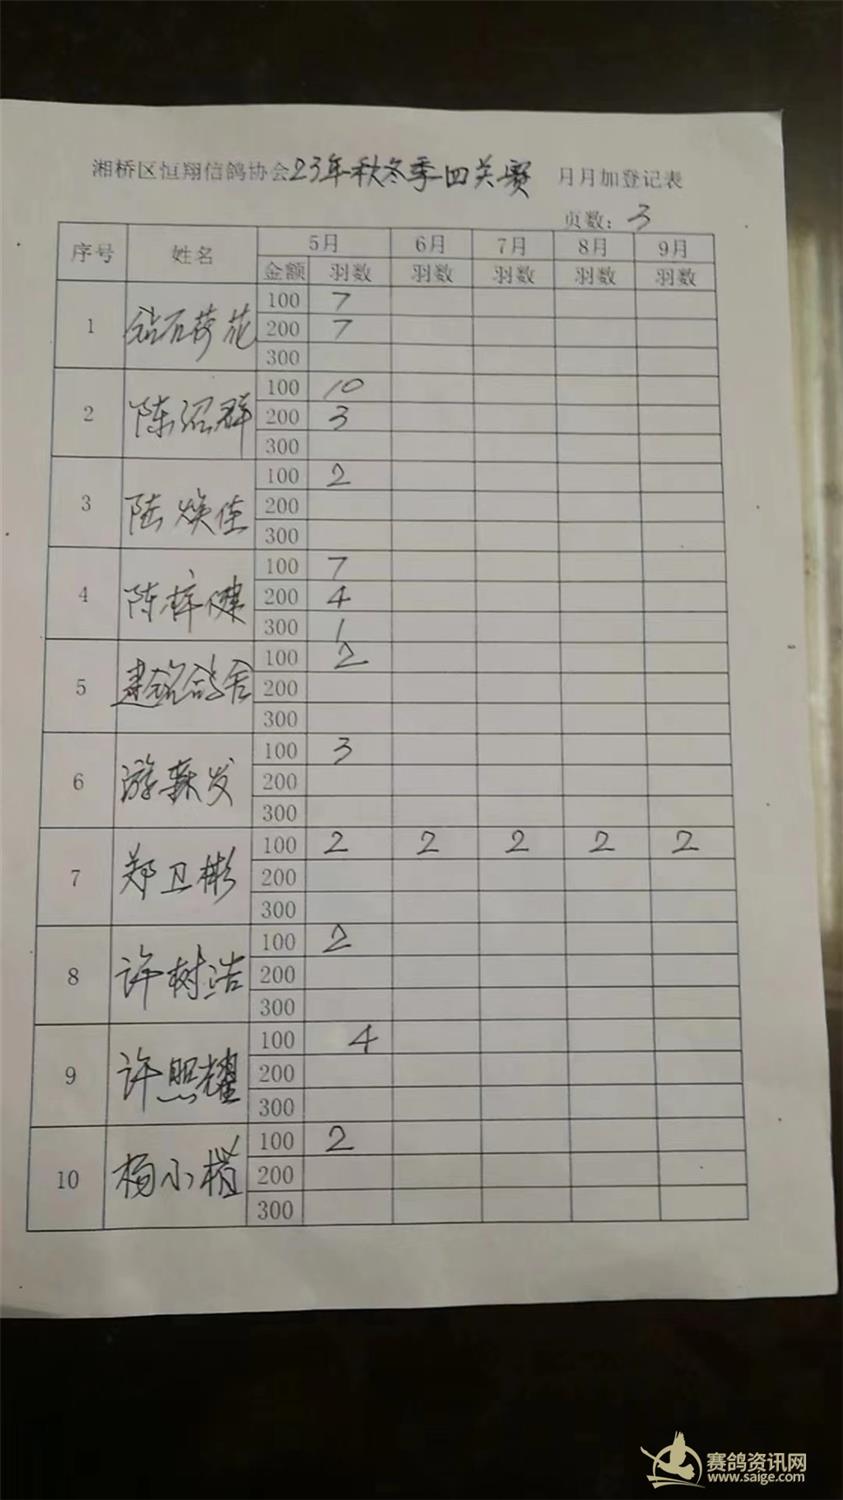 湘桥区恒翔信鸽协会23年秋冬季四关赛 月月加登记表
页数: 3
序号 姓名 5月 6月 7月 8月 9月
金额 羽数 羽数 羽数 羽数 羽数
1 钻石荷花 100 7
200 7
300
2 陈沼群 100 10
200 3
300
3 陆焕佳 100 2
200
300
4 陈梓健 100 7
200 4
300 1
5 建铭鸽舍 100 2
200
300
6 游森发 100 3
200
300
7 郑卫彬 100 2 2 2 2 2
200
300
8 许树浩 100 2
200
300
9 许照耀 100 4
200
300
10 杨小 100 2
200
300
赛鸽资讯网
www.saige.com